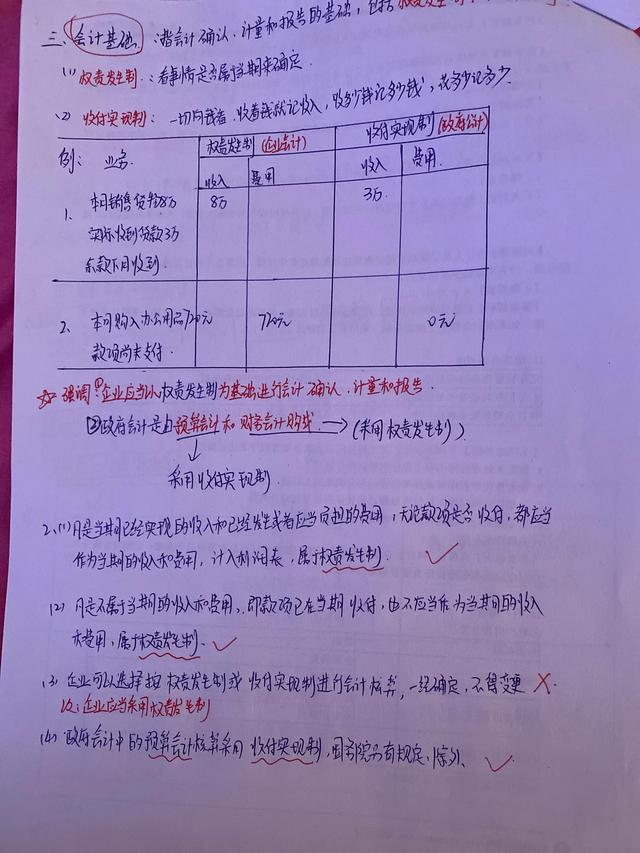 三、会计基础：指会计确认、计量和报告的基础，包括权责发生制
(1) 权责发生制：看事情是否属于当期来确定.
(2) 收付实现制：一切向钱看.收着钱就记收入,收多少钱记多少钱,花多少记多少.
例： 业务 权责发生制(企业会计) 收付实现制(政府会计)
收入 费用 收入 费用.
1、本月销售货物8万 8万 3万.
实际收到货款3万
余款下月收到.
2、本月购入办公用品720元 720元 0元
款项尚未支付.
☆强调：①企业应当以权责发生制为基础进行会计确认、计量和报告.
②政府会计是由预算会计和财务会计购成.→(采用权责发生制)
采用收付实现制.
2、(1)凡是当期已经实现的收入和已经发生或者应当负担的费用,无论款项是否收付,都应当
作为当期的收入和费用,计入利润表,属于权责发生制. ✓
(2)凡是不属于当期的收入和费用,即款项已在当期收付,也不应当作为当期的收入
和费用,属于权责发生制. ✓
(3)企业可以选择按权责发生制或收付实现制进行会计核算,一经确定,不得变更 ✗.
改:企业应当采用权责发生制
(4)政府会计中的预算会计核算采用收付实现制,国务院另有规定,除外. ✓